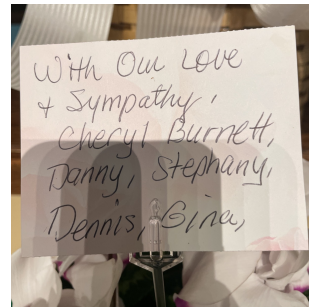 With Our Love
+ Sympathy,
Cheryl Burnett,
Danny, Stephany,
Dennis, Gina,